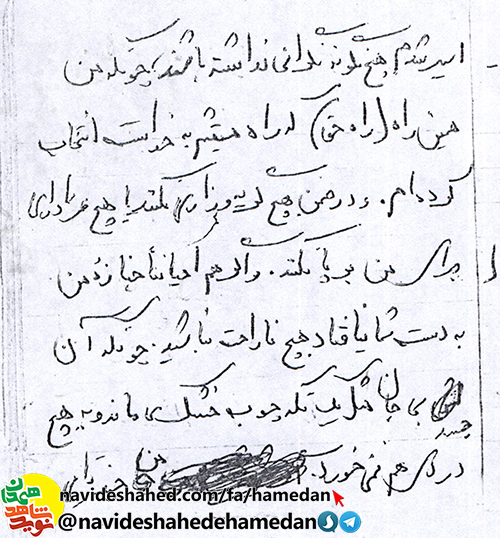 اسیر شدم هیچ گونه نگرانی نداشته باشند، چونکه من
همین راه (راه حق) که راه مستقیم به خداست انتخاب
کرده‌ام. و در ضمن هیچ گریه و زاری نکنند یا هیچ عزاداری
برای من بر پا نکنند. و اگر هم احیاناً جنازهٔ من
به دست شما نیافتاد هیچ ناراحت نباشید. چونکه آن
جسد بی جان مثل یک تکه چوب خشک می ماند و به هیچ
دردی هم نمی خورد. من
navideshahed.com/fa/hamedan
@navideshahedehamedan
نوید شاهد